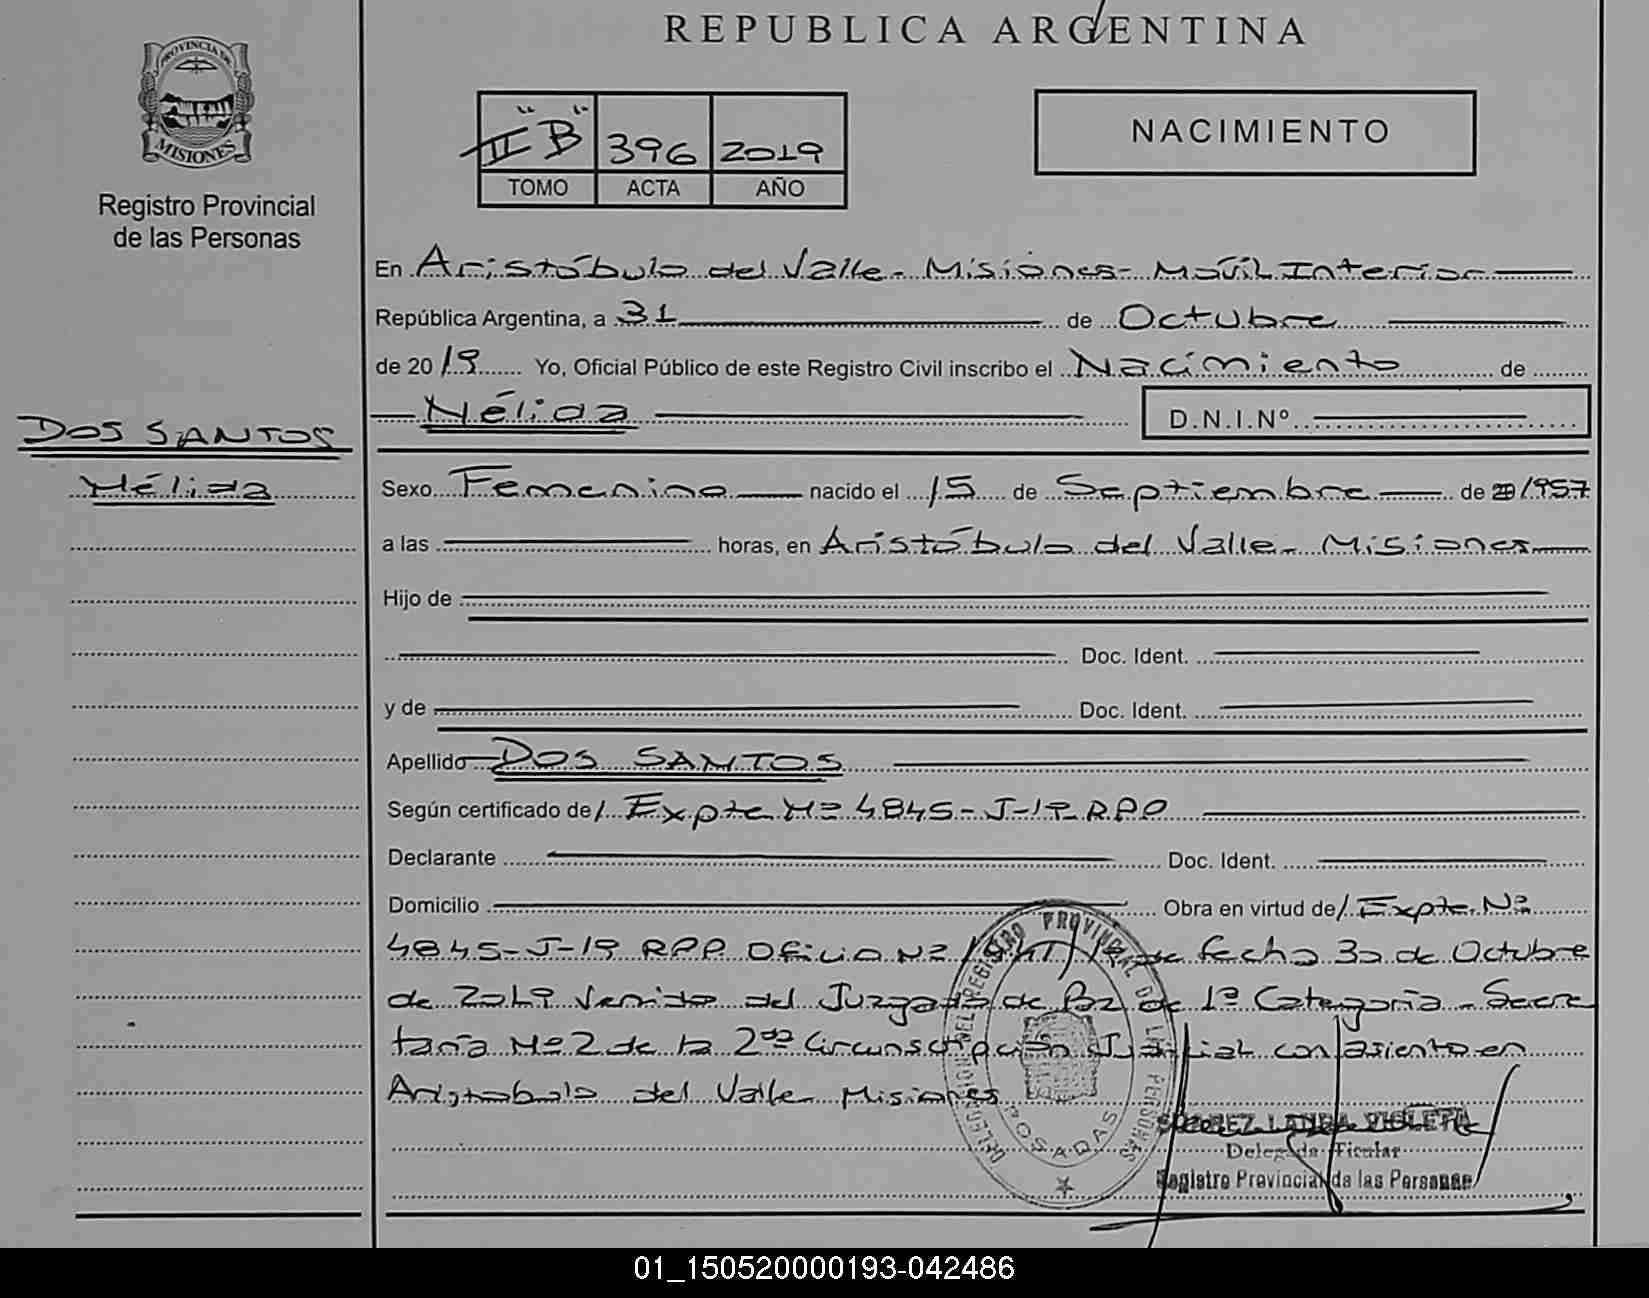 REPUBLICA ARGENTINA
PROVINCIA DE
MISIONES
Registro Provincial
de las Personas
II "B" 396 2019
TOMO ACTA AÑO
NACIMIENTO
En Aristóbulo del Valle - Misiones - Móvil Interior
República Argentina, a 31 de Octubre
de 2019 Yo, Oficial Público de este Registro Civil inscribo el Nacimiento de
Nélida D.N.I.Nº
DOS SANTOS
Nélida
Sexo Femenino nacido el 15 de Septiembre de 1957
a las horas, en Aristóbulo del Valle - Misiones
Hijo de
Doc. Ident.
y de Doc. Ident.
Apellido DOS SANTOS
Según certificado de/ Expte Nº 4845-J-19 RPP
Declarante Doc. Ident.
Domicilio Obra en virtud de/ Expte. Nº
4845-J-19 RPP. Oficio Nº de fecha 30 de Octubre
de 2019 Venido del Juzgado de Paz de 1º Categoría - Secre
taría Nº 2 de la 2da Circunscripción Judicial con asiento en
Aristobulo del Valle Misiones
DELEGACION DEL REGISTRO PROVINCIAL DE LAS PERSONAS
POSADAS
SUAREZ LANDA VIOLETA
Delegada Titular
Registro Provincial de las Personas
01_150520000193-042486